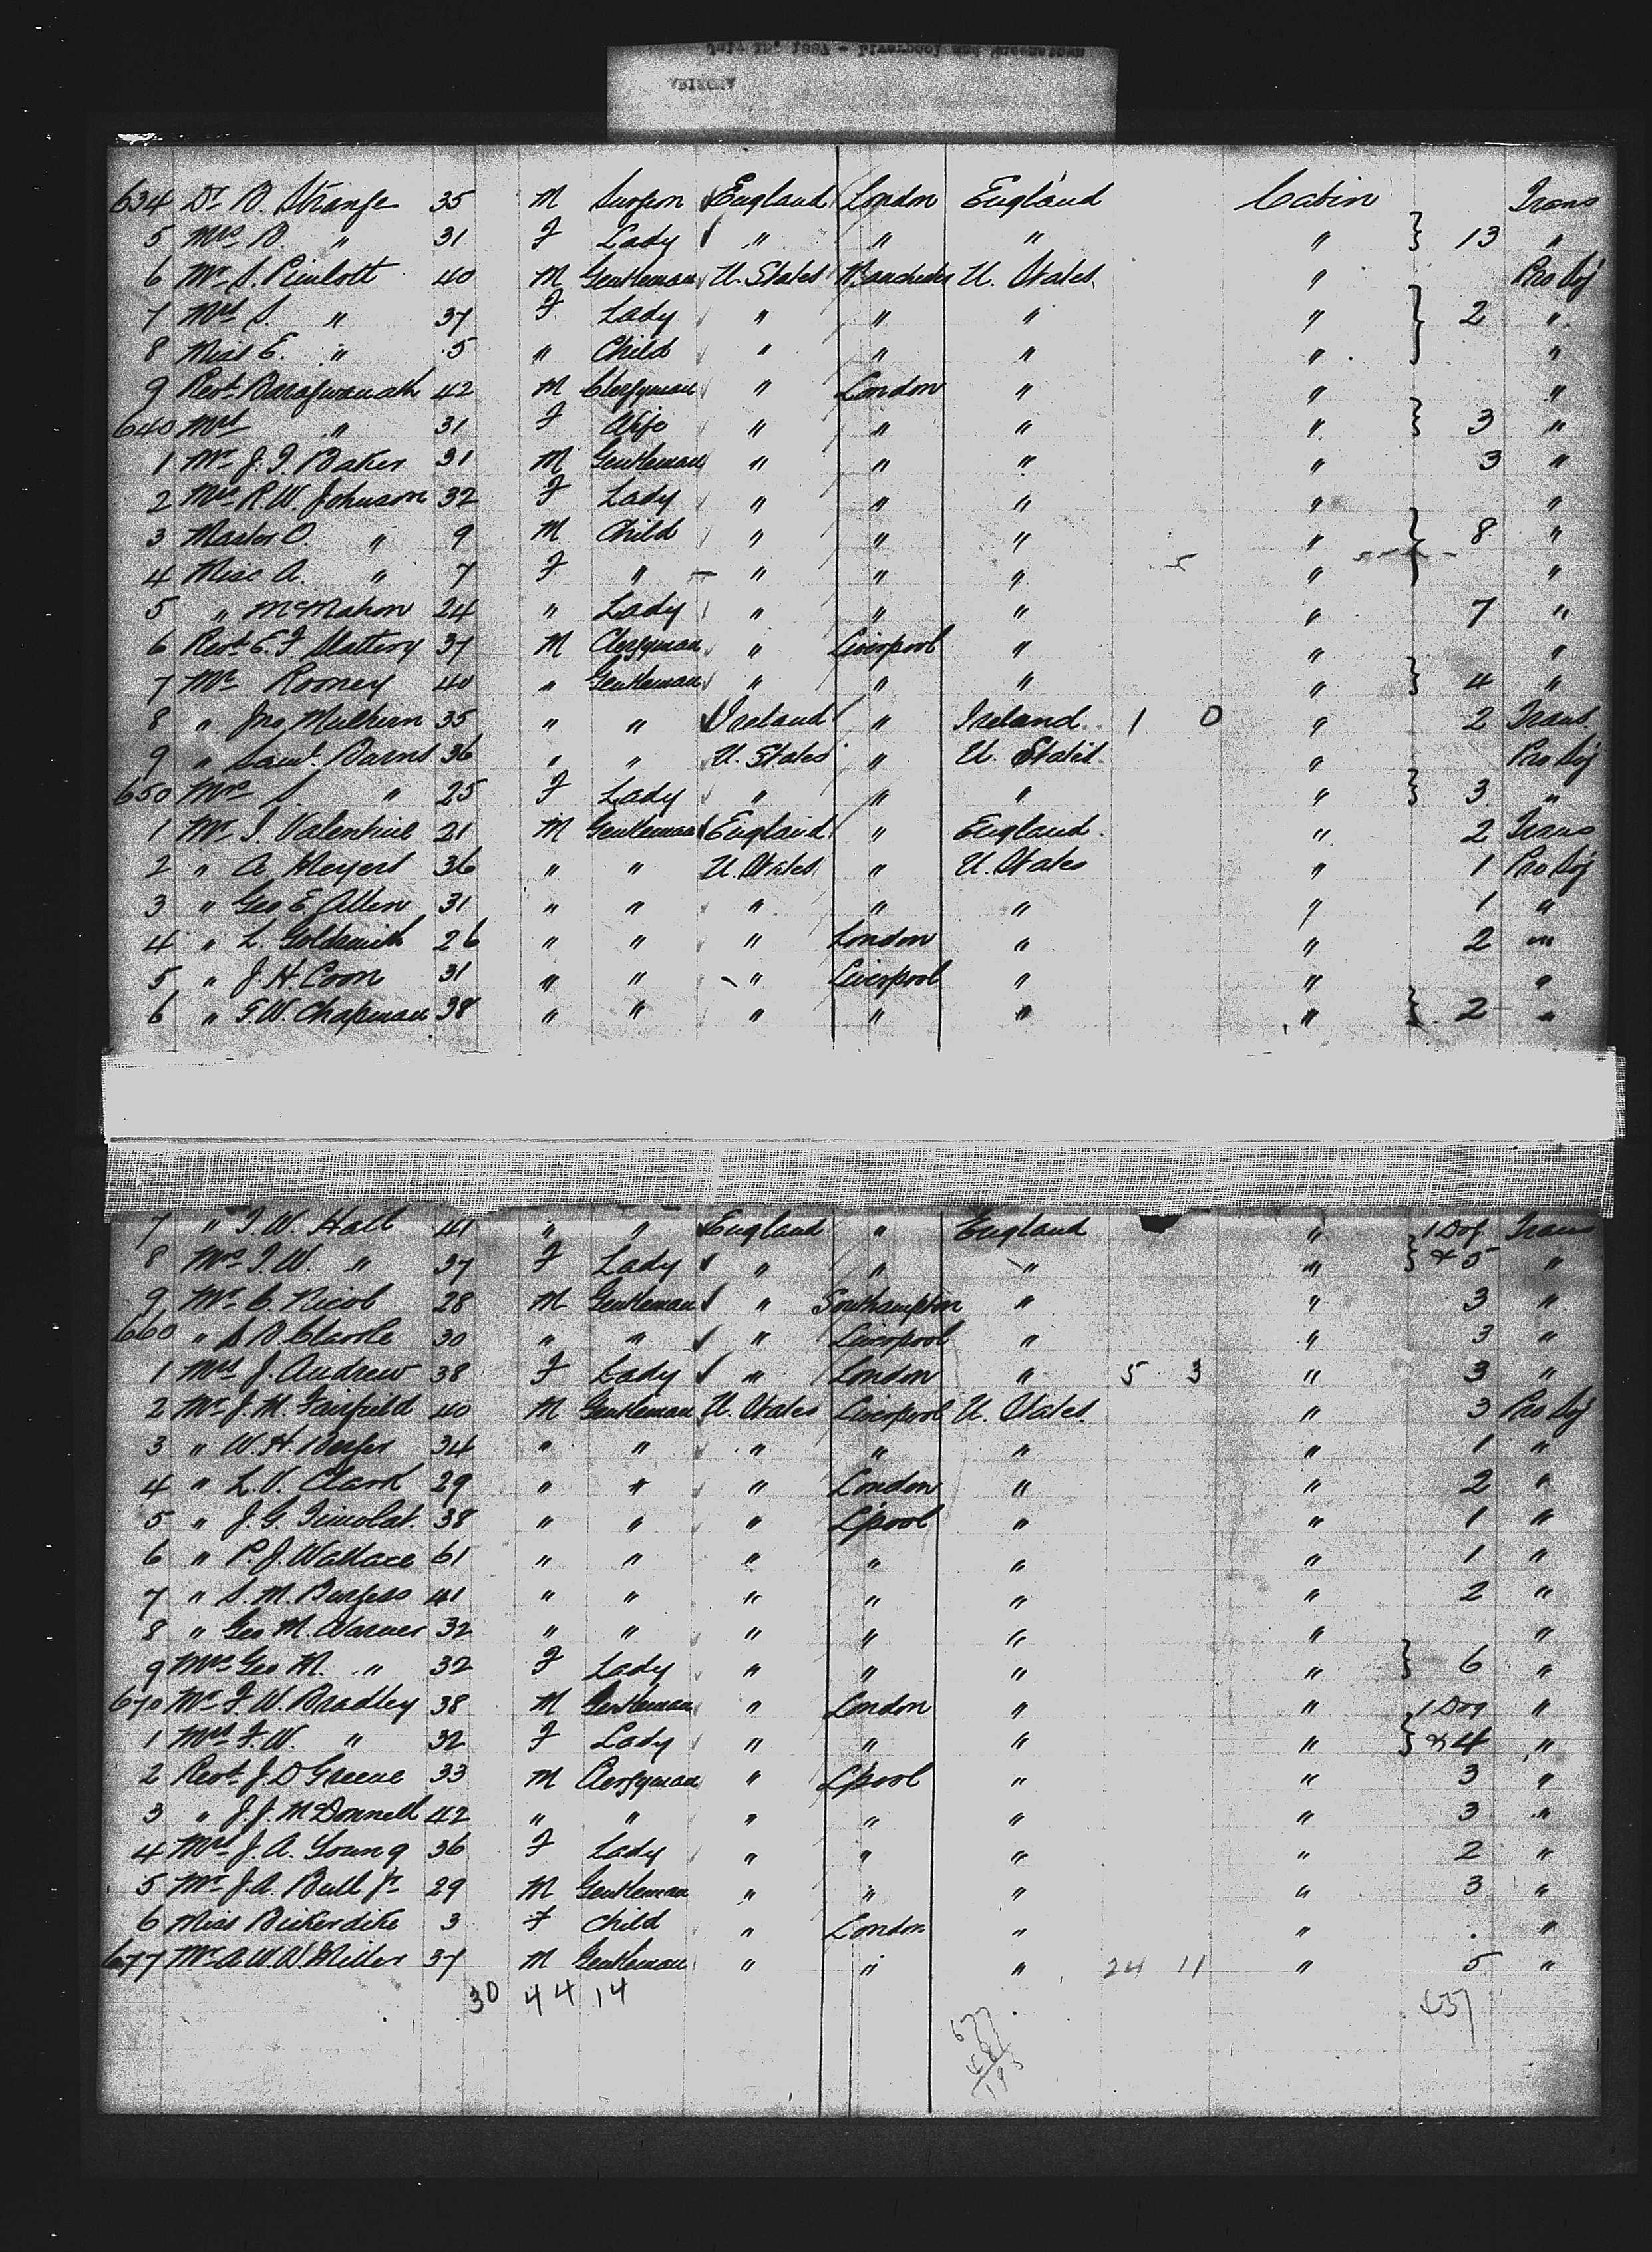 634 Dr B. Strange 35 M Surgeon England London England Cabin Trans
5 Mrs B. " 31 F Lady " " " " } 13 "
6 Mr S. 40 M Gentleman U. States Manchester U. States " Pro Soj
7 Mrs S. " 37 F Lady " " " " } 2 "
8 Miss E. " 5 " Child " " " " "
9 Revd Baragwanath 42 M Clergyman " London " " "
640 Mrs " 31 F Wife " " " " } 3 "
1 Mr J. F. Baker 31 M Gentleman " " " " 3 "
2 Mrs R. W. Johnson 32 F Lady " " " " "
3 Master O. " 9 M Child " " " " } 8 "
4 Miss A. " 7 F " " " " " "
5 " McMahon 24 " Lady " " " " 7 "
6 Revd E. F Slattery 37 M Clergyman " Liverpool " " "
7 Mr Rooney 40 " Gentleman " " " " } 4 "
8 " Jno Mulhern 35 " " Ireland " Ireland 1 0 " 2 Trans
9 " Saml. Burns 36 " " U. States " U. States " Pro Soj
650 Mrs S. " 25 F Lady " " " " } 3 "
1 Mr I. Valentine 21 M Gentleman England " England " 2 Trans
2 " A Meyers 36 " " U. States " U. States " 1 Pro Soj
3 " Geo E. Allen 31 " " " " " " 1 "
4 " L. Goldsmith 26 " " " London " " 2 "
5 " J. H. Coon 31 " " " Liverpool " " "
6 " T. W. Chapman 38 " " " " " " } 2 "
7 " T. W. Hall 41 " " England " England " 1 Dog Trans
8 Mrs T. W. " 37 F Lady " " " " } & 5 "
9 Mr C. Nicol 28 M Gentleman " Southampton " " 3 "
660 " 30 " " " Liverpool " " 3 "
1 Mrs J. Andrew 38 F Lady " London " 5 3 " 3 "
2 Mr J. M. Fairfield 40 M Gentleman U. States Liverpool U. States " 3 Pro Soj
3 " W. H. 34 " " " " " " 1 "
4 " L. V. Clark 29 " " " London " " 2 "
5 " J. G. 38 " " " L'pool " " 1 "
6 " P. J. Wallace 61 " " " " " " 1 "
7 " S. M. Burgess 41 " " " " " " 2 "
8 " Geo M. Warner 32 " " " " " " "
9 Mrs Geo M. " 32 F Lady " " " " } 6 "
670 Mr F. W. Bradley 38 M Gentleman " London " " 1 Dog "
1 Mrs F. W. " 32 F Lady " " " " } & 4 "
2 Revd J. D Greene 33 M Clergyman " L'pool " " 3 "
3 " J. J. McDonnell 42 " " " " " " 3 "
4 Mrs J. A. Young 36 F Lady " " " " 2 "
5 Mr J. A. Bull Jr 29 M Gentleman " " " " 3 "
6 Miss Bickerdike 3 F Child " London " " "
677 Mr A. W. W. Miller 37 M Gentleman " " " 24 11 " 5 "
30 44 14
677